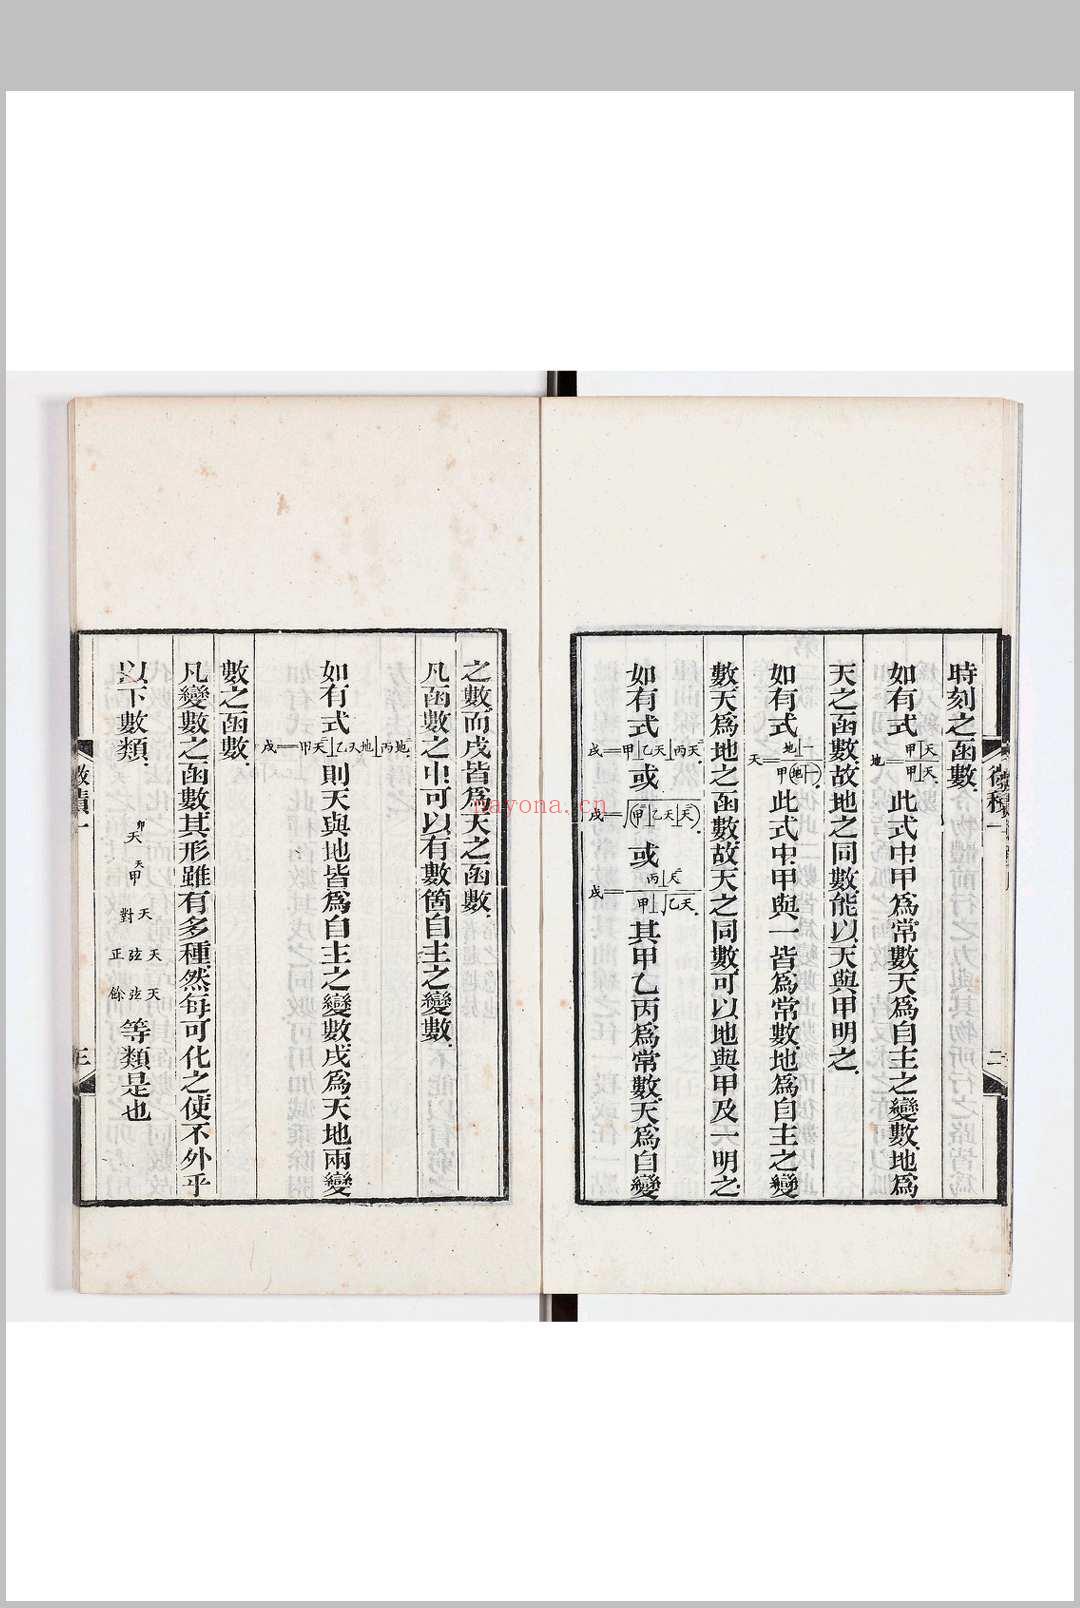 時刻之函數
如有式 地＝甲⊥天 甲天 此式中甲爲常數天爲自主之變數地爲
天之函數故地之同數能以天與甲明之
如有式 天＝甲(地⊥一) 地⊤一 此式中甲與一皆爲常數地爲自主之變
數天爲地之函數故天之同數可以地與甲及一明之
如有式 戌＝甲⊥乙天⊥丙天 或 戌＝ 或 戌＝ 其甲乙丙爲常數天爲自變
微積一
二
之數而戌皆爲天之函數
凡函數之中可以有數箇自主之變數
如有式 則天與地皆爲自主之變數戌爲天地兩變
數之函數
凡變數之函數其形雖有多種然每可化之使不外乎
以下數類 天卯 甲天 對天 正弦天 餘弦天 等類是也
三
nayona.cn